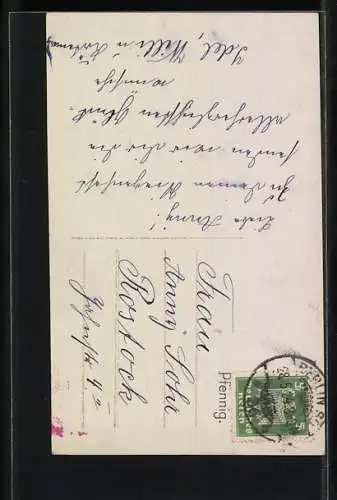 Liebe Anny!
Zu Deinem Wiegenfeste
senden wir dir die
allerherzlichsten Glück-
wünsche
Idel, Willi u.
Frau
Anny Sohr
Rostock
Pfennig.
BERLIN